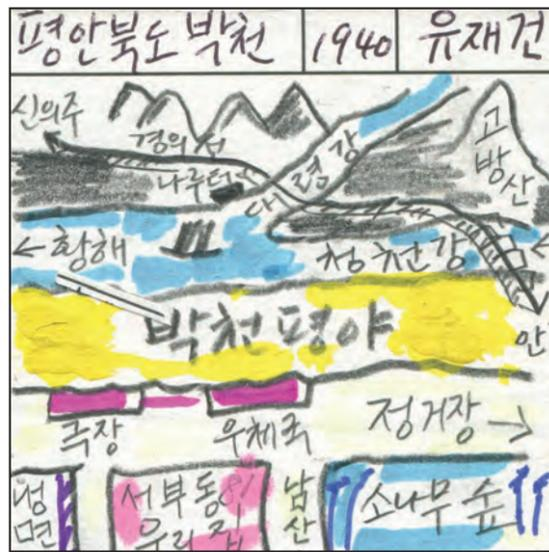 평안북도 박천 1940 유재건
신의주
경의선
나루터
대령강
고방산
← 황해
청천강
박천평야
안
극장 우체국 정거장 →
냉면
서부동 81
우리집
남산
소나무 숲